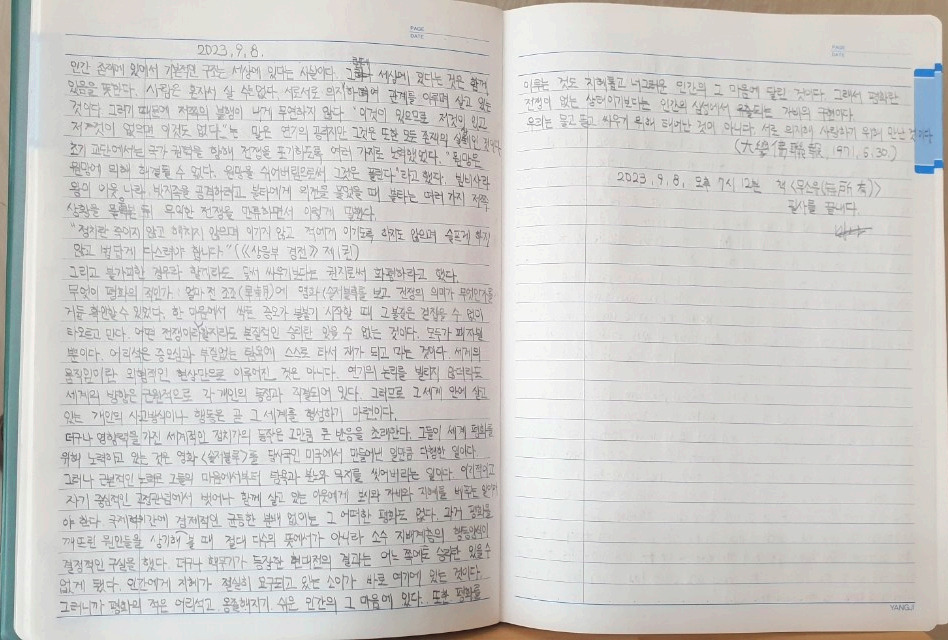 PAGE
DATE
2023. 9. 8.
인간 존재에 있어서 기본적인 구조는 세상에 있다는 사실이다. 그런데 세상에 있다는 것은 함께
있음을 뜻한다. 사람은 혼자서 살 수 없다. 서로서로 의지하여 관계를 이루며 살고 있는
것이다. 그러기 때문에 저쪽의 불행이 내게 무연하지 않다. "이것이 있으므로 저것이 있고
저것이 없으면 이것도 없다."는 말은 연기의 공리지만 그것은 또한 모든 존재의 실상인 것이다.
초기 교단에서는 국가 권력을 향해 전쟁을 포기하도록 여러 가지로 노력했었다. "원망은
원망에 의해 해결될 수 없다. 원망을 쉬어버림으로써 그것은 풀린다"라고 했다. 빔비사라
왕이 이웃 나라 밧지족을 공격하려고 불타에게 의견을 물었을 때 불타는 여러 가지 저쪽
상황을 물은 뒤 무익한 전쟁을 만류하면서 이렇게 말했다.
"정치란 죽이지 않고 해치지 않으며 이기지 않고 적에게 이기도록 하지도 않으며 슬프게 하지
않고 법답게 다스려야 합니다" (《상응부 경전》 제1권)
그리고 불가피한 경우라 할지라도 등서 싸우기보다는 권지로써 화평하라고 했다.
무엇이 평화의 적인가. 얼마 전 조조(早朝)에 영화 <솔저블루>를 보고 전쟁의 의미가 무엇인가를
거듭 확인할 수 있었다. 한 마음에서 싹튼 증오가 불붙기 시작할 때 그 불길은 걷잡을 수 없이
타오르고 만다. 어떤 전쟁이라 할지라도 본질적인 승리란 있을 수 없는 것이다. 모두가 패자일
뿐이다. 어리석은 증오심과 부질없는 탐욕에 스스로 타서 재가 되고 마는 것이다. 세계의
움직임이란 외형적인 현상만으로 이루어진 것은 아니다. 연기의 논리를 빌리지 않더라도
세계의 방향은 근원적으로 각 개인의 동정과 직결되어 있다. 그러므로 그 세계 안에 살고
있는 개인의 사고방식이나 행동은 곧 그 세계를 형성하기 마련이다.
더구나 영향력을 가진 세계적인 정치가의 동작은 그만큼 큰 반응을 초래한다. 그들이 세계 평화를
위해 노력하고 있는 것은 영화 <솔저블루>를 당사국인 미국에서 만들어낸 일만큼 다행한 일이다.
그러나 근본적인 노력은 그들의 마음에서부터 탐욕과 분노와 무지를 씻어버리는 일이다. 이기적이고
자기 중심적인 고정관념에서 벗어나 함께 살고 있는 이웃에게 보다 자비와 지혜를 베푸는 일이어
야 한다. 국제간에 경제적인 균등한 분배 없이는 그 어떠한 평화도 없다. 과거 평화를
깨뜨린 원인들을 상기해 볼 때 절대 다수의 뜻에서가 아니라 소수 지배계층의 행동양식이
결정적인 구실을 했다. 더구나 핵무기가 등장한 현대전의 결과는 어느 쪽에도 승리란 있을 수
없게 됐다. 인간에게 지혜가 절실히 요구되고 있는 소이가 바로 여기에 있는 것이다.
그러니까 평화의 적은 어리석고 옹졸해지기 쉬운 인간의 그 마음에 있다. 또한 평화를
PAGE
DATE
이루는 것도 지혜롭고 너그러운 인간의 그 마음에 달린 것이다. 그래서 평화란
전쟁이 없는 상태이기보다는 인간의 심성에서 유출되는 자비의 구현이다.
우리는 물고 뜯고 싸우기 위해 태어난 것이 아니다. 서로 의지해 사랑하기 위해 만난 것이다
(大學佛敎聯報, 1971. 5. 30.)
2023. 9. 8. 오후 7시 12분 책 <무소유(無所有)>
필사를 끝내다.
YANGJI